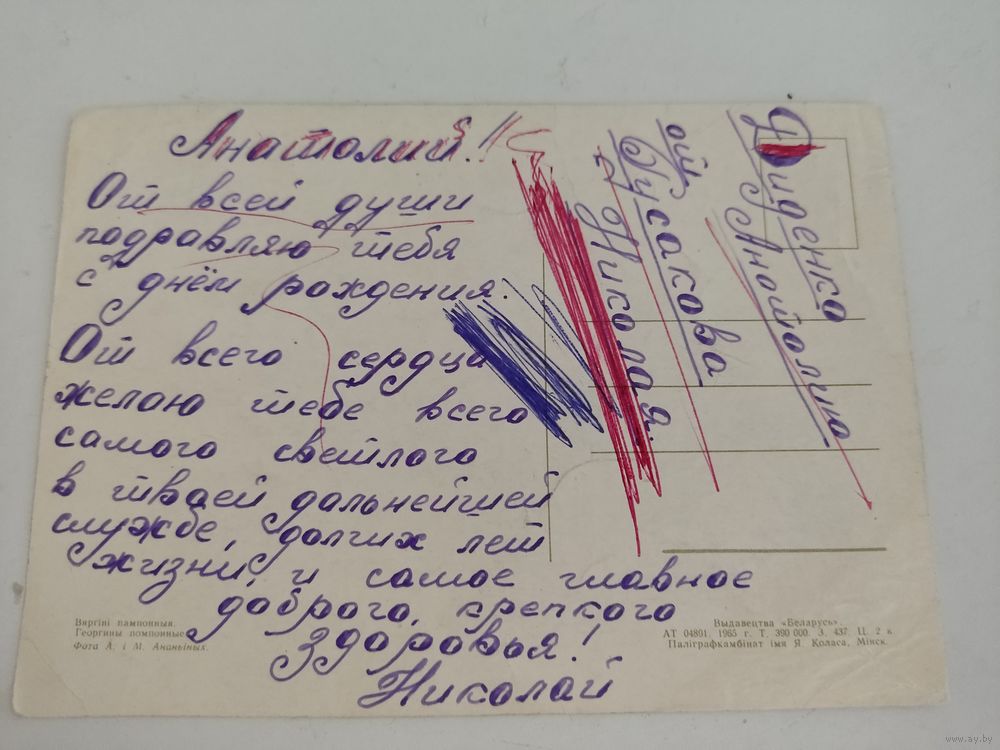 Анатолий!!
От всей души
подравляю тебя
с днём рождения.
От всего сердца
желаю тебе всего
самого светлого
в тваей дальнейшей
службе, долгих лет
жизни, и самое главное
доброго, крепкого
здоровья!
Николай
Диденко
Анатолию
от
Гусакова
Николая.
Вяргіні пампонныя.
Георгины помпонные.
Фота А. і М. Ананьіных.
Выдавецтва «Беларусь».
АТ 04891. 1965 г. Т. 390 000. З. 437. Ц. 2 к.
Паліграфкамбінат імя Я. Коласа, Мінск.
www.ay.by